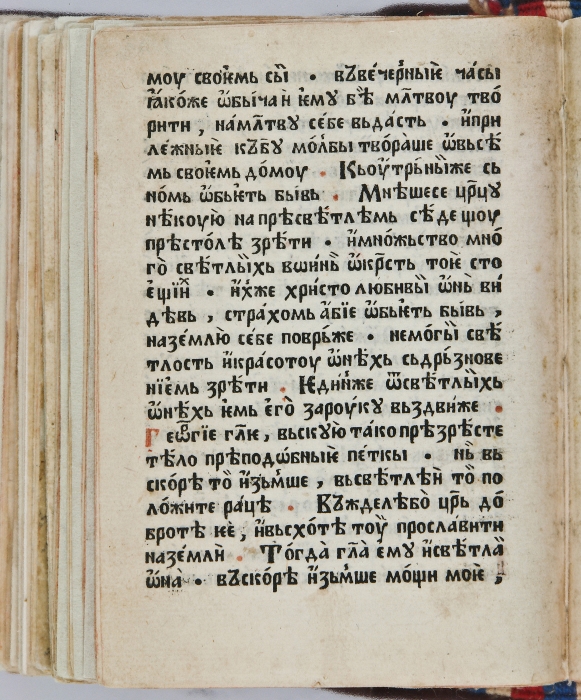 моу своѥмь сы̀ • въве́чер̾ныѥ ча́сы
ꙗ҆ко́же ѡ҆бы́чан ѥ҆му бѣ̀ мл҃твоу тво́
рити , на́мл҃тву се́бе вьда́сть • и҆при
ле́жныѥ къбу мо́лбы твора́ше ѡ҆вьсѐ
мь своѥмь до́моу • Кьоу҆тры́нїйже сь
но́мь ѡ҆быѥть бы́вь • Мнѣ́шесе цр҃цу
нѣ́коую на прѣсвѣ́тлѣмь сѣ́де щоу
прѣсто́лѣ зрѣ́ти • и҆мно́жьство мно́
го̀ свѣ́тлыихь вши́нь ѡ҆кр҃сть тоѥ сто
ещїи • и҆х҆же христо любивыи ѡ҆нь ви
дѣвь , стра́хомь а҆́бїе ѡ҆быѥть бы́вь ,
назе́млю се́бе повр̾же • немогы̀ свѣ́
тлость и҆кра́сотоу ѡ҆нѣ́хь сьдрь́знове
нїѥмь зрѣ́ти • Ѥди́н҆же ѿсвѣ́тлыихь
ѡ҆нѣ́хь ѥмь ѥ҆го̀ за́роуку вьздви́же •
Геѡ҆́ргїе гл҃ѥ , вьскую та́ко прѣзрѣ́сте
тѣ́ло прѣподо́бныѥ пе́ткы • нь̀ вь
ско́рѣ то̀ и҆зьм҆ше , вьсвѣ́тлѣи то̀ по
ло́жите ра́цѣ • Въжделѣ́бо̀ цр҃ь до́
бротѣ ѥѐ , и҆вьсхо́тѣ тоу̀ просла́вити
назе́мли • То́гда̀ гл҃а ѥ҆му и҆свѣ́тла
ѡ҆на̀ • въско́рѣ и҆зьм҆ше мо́щи моѥ ,